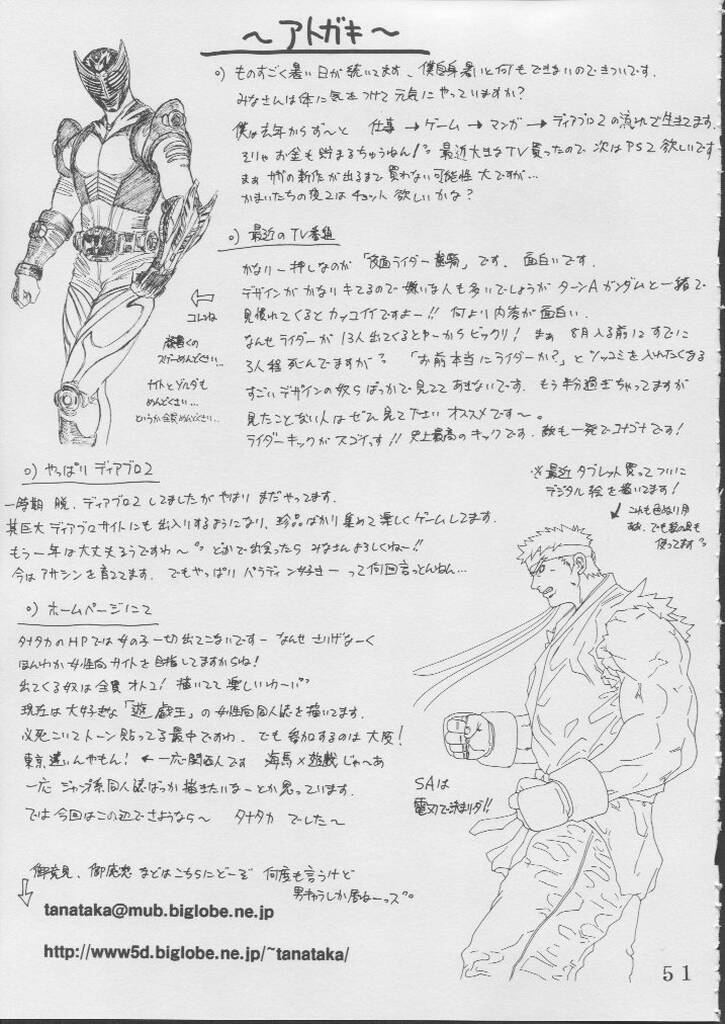 ～アトガキ～
○) ものすごく暑い日が続いてます、僕自身暑いと何もできないのできついです.
みなさんは体に気をつけて元気にやっていますか?
僕は去年からず～と 仕事→ゲーム→マンガ→ディアブロ2の流れで生きてます.
そりゃお金も貯まるちゅうねん!° 最近大きなTV買ったので次はPS2欲しいです
まぁ サガの新作が出るまで買わない可能性大ですが…
かまいたちの夜2はチョット欲しいかな?
○) 最近のTV番組
かなり一押しなのが「仮面ライダー龍騎」です. 面白いです.
デザインがかなりキてるので嫌いな人も多いでしょうがターンAガンダムと一緒で
見慣れてくるとカッコイイですよー!! 何より内容が面白い.
なんせライダーが13人出てくるとゆーからビックリ! まぁ 8月入る前にすでに
3人程死んでますが° 「お前本当にライダーか?」とツッコミを入れたくなる
すごいデザインの奴らばっかで見ててあきないです. もう半分過ぎちゃってますが
見たことない人はぜひ見て下さい オススメです～。
ライダーキックがスゴイっす!! 史上最高のキックです. 敵も一発でコナゴナです!
⇦
コレね
スゲーめんどくさい…
ナイトとゾルダも
めんどくさい…
というか全員めんどくさい…
○) やっぱりディアブロ2
一時期 脱、ディアブロ2してましたがやはりまだやってます.
某巨大ディアブロサイトにも出入りするようになり、珍品ばかり集めて楽しくゲームしてます.
もう一年は大丈夫ろうですわ～° どこかで出会ったらみなさんよろしくねー!!
今はアサシンを育ててます. でもやっぱりパラディン好きーって何回言っとんねん…
※最近タブレット買ってついに
デジタル絵を描いてます!
↙
使ってます°
○) ホームページにて
タナタカのHPでは女の子一切出てこないですー なんせ さりげなーく
ほんわか女性向サイトを目指してますからね!
出てくる奴は全員オトコ! 描いてて楽しいわ～!°
現在は大好きな「遊戯王」の女性向同人誌を描いてます.
必死こいてトーン貼ってる最中ですわ. でも参加するのは大阪!
東京遠いんやもん! ←一応関西人です 海馬×遊戯じゃ～あ
一応 ジャンプ系同人誌ばっか描きたいなーとか思っています.
では今回はこの辺でさようなら～ タナタカ でした～
SAは
電刃で決まりダ!!
御意見、御感想 などはこちらにどーぞ 何度も言うけど
男キャラしか居ねーっス°
⇩
tanataka@mub.biglobe.ne.jp
http://www5d.biglobe.ne.jp/~tanataka/
51